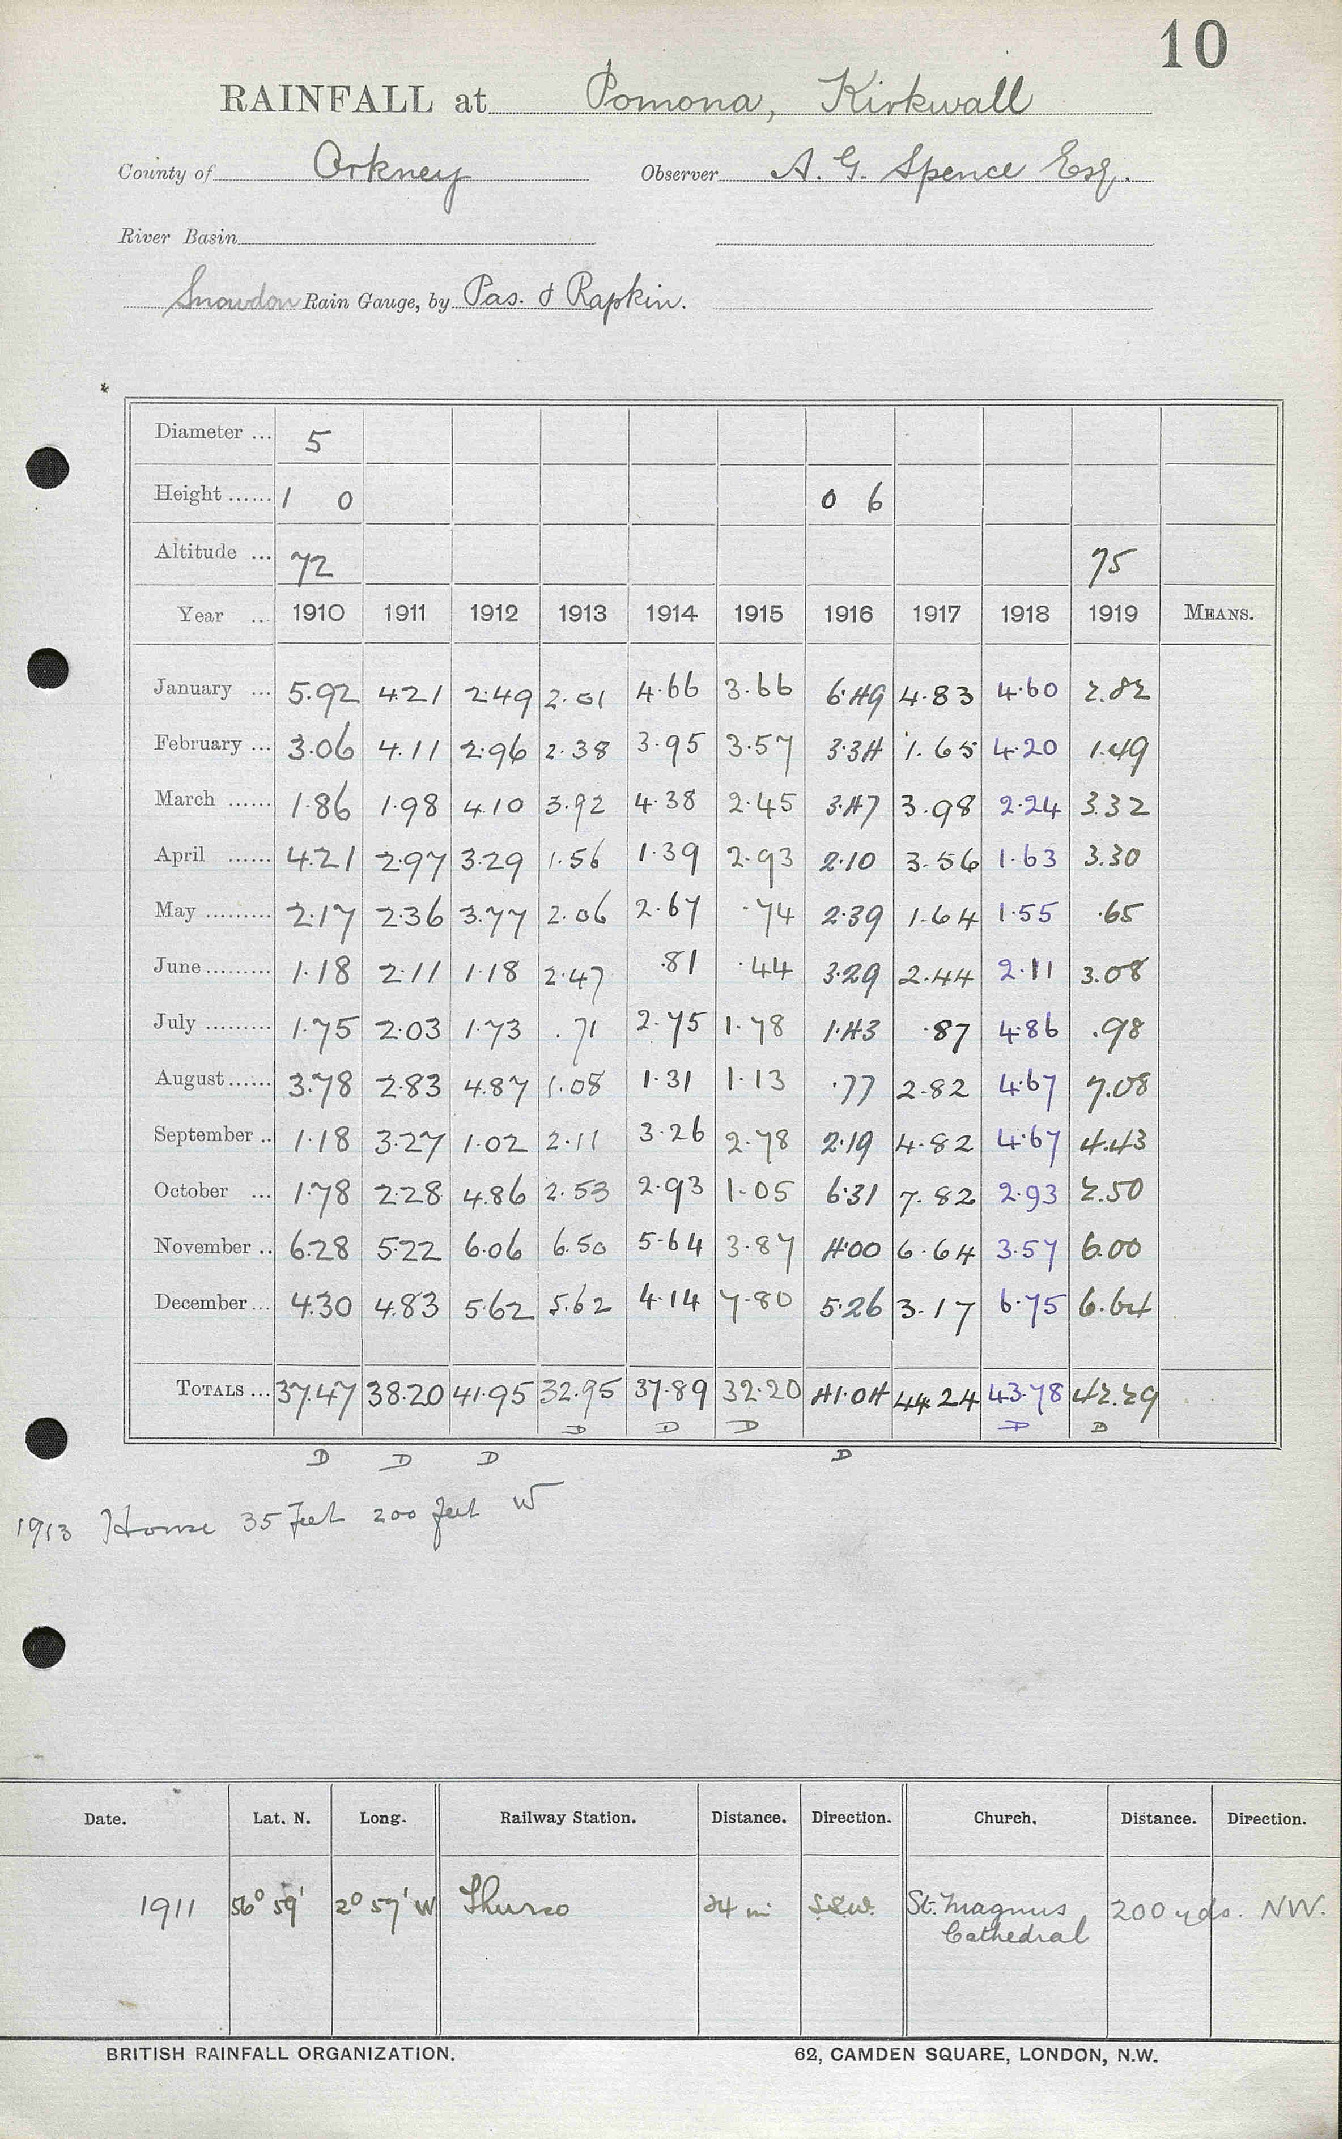 10
RAINFALL at Pomona, Kirkwall
County of Orkney Observer A. G. Spence Esq.
River Basin
Snowdon Rain Gauge, by Pas. & Rapkin.
Diameter ... 5
Height ...... 1 0 0 6
Altitude ... 72 75
Year ... 1910 1911 1912 1913 1914 1915 1916 1917 1918 1919 MEANS.
January ... 5.92 4.21 2.49 2.01 4.66 3.66 6.49 4.83 4.60 2.82
February ... 3.06 4.11 2.96 2.38 3.95 3.57 3.34 1.65 4.20 1.49
March ...... 1.86 1.98 4.10 3.92 4.38 2.45 3.47 3.98 2.24 3.32
April ...... 4.21 2.97 3.29 1.56 1.39 2.93 2.10 3.56 1.63 3.30
May ......... 2.17 2.36 3.77 2.06 2.67 .74 2.39 1.64 1.55 .65
June ......... 1.18 2.11 1.18 2.47 .81 .44 3.29 2.44 2.11 3.08
July ......... 1.75 2.03 1.73 .71 2.75 1.78 1.43 .87 4.86 .98
August ...... 3.78 2.83 4.87 1.08 1.31 1.13 .77 2.82 4.67 7.08
September .. 1.18 3.27 1.02 2.11 3.26 2.78 2.19 4.82 4.67 4.43
October ... 1.78 2.28 4.86 2.53 2.93 1.05 6.31 7.82 2.93 2.50
November .. 6.28 5.22 6.06 6.50 5.64 3.87 4.00 6.64 3.57 6.00
December ... 4.30 4.83 5.62 5.62 4.14 7.80 5.26 3.17 6.75 6.64
TOTALS ... 37.47 38.20 41.95 32.95 37.89 32.20 41.04 44.24 43.78 42.29
D D D D D
D D D D
1913 House 35 feet 200 feet W
Date. Lat. N. Long. Railway Station. Distance. Direction. Church. Distance. Direction.
1911 56° 59' 2° 57' W Thurso 24 mi S.S.W. St. Magnus 200 yds. NW.
Cathedral
BRITISH RAINFALL ORGANIZATION. 62, CAMDEN SQUARE, LONDON, N.W.